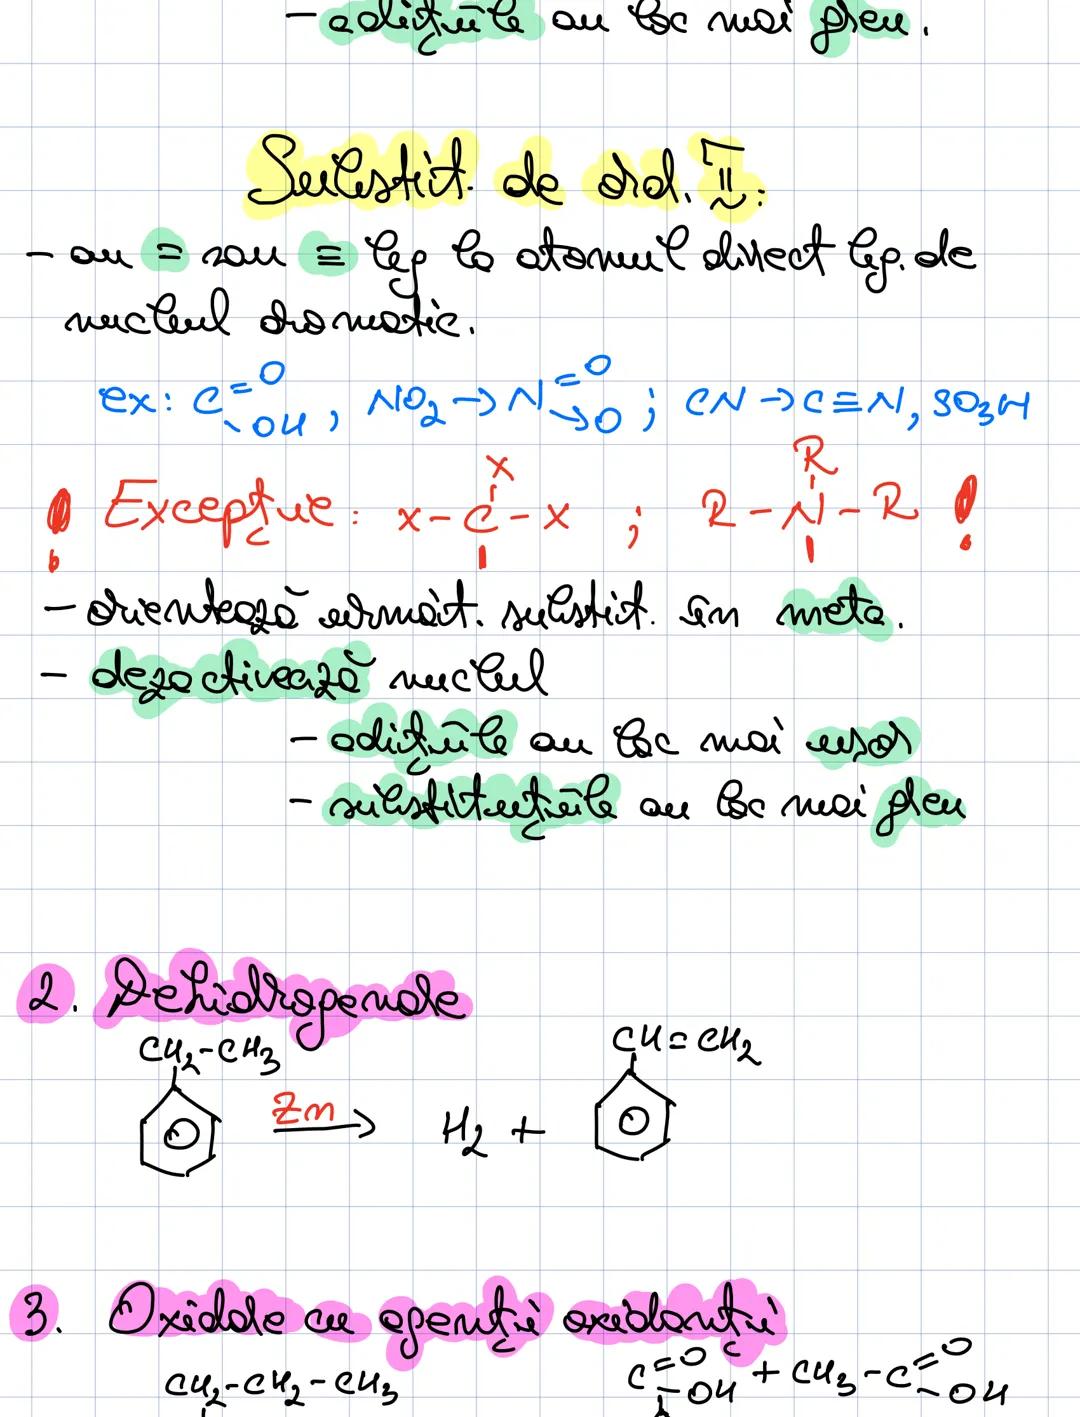 - adițiile au loc mai greu.
Substit. de ord. II.
- au = sau ≡ leg la atomul direct leg. de
nucleul aromatic.
ex: C=O -OH, NO2 → N=O →O; CN → C≡N, SO3H
! Excepție: X-C-X X ; R-N-R R !
- orientează următ. substit. în meta.
- dezactivează nucleul
- adițiile au loc mai ușor
- substituțiile au loc mai greu
2. Dehidrogenare
CH2-CH3 CH=CH2
Zn → H2 +
3. Oxidare cu agenți oxidanți
CH2-CH2-CH3 C=O -OH + CH3-C=O -OH